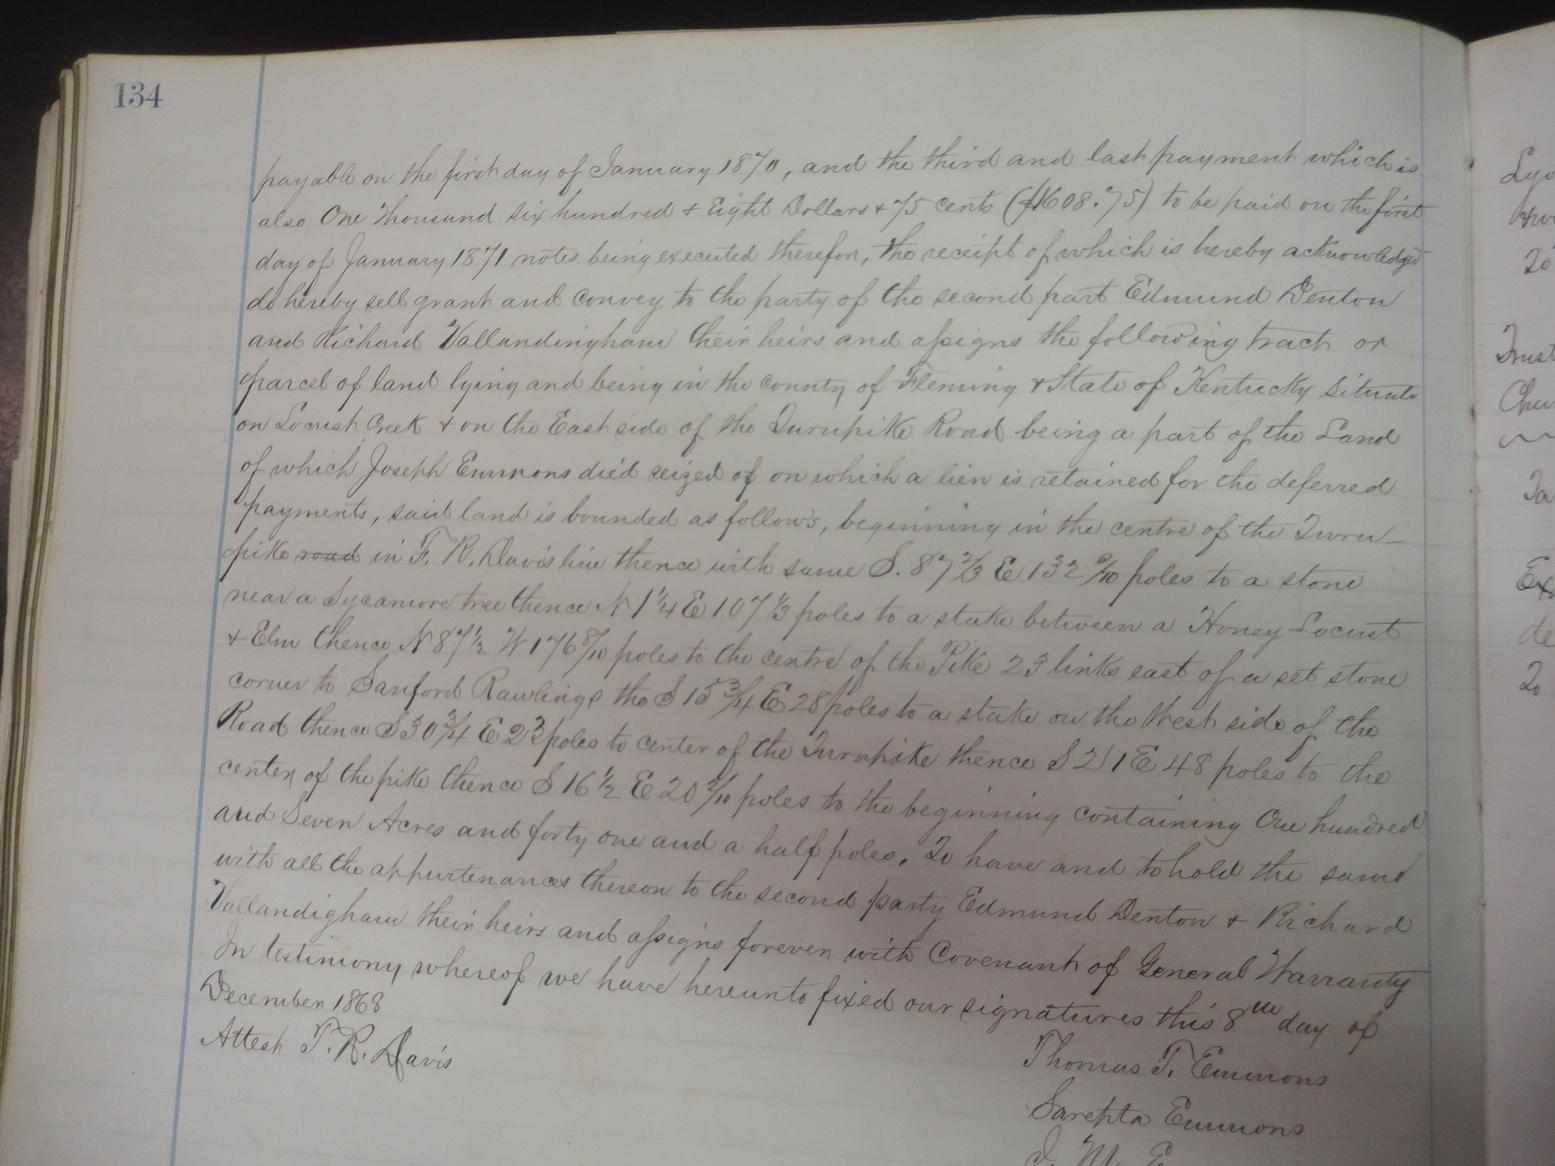 134
payable on the first day of January 1870, and the third and last payment which is
also One Thousand six hundred + Eight Dollars + 75 cents ($1608.75) to be paid on the first
day of January 1871 notes being executed therefor, the receipt of which is hereby acknowledged
do hereby sell grant and convey to the party of the second part Edmund Denton
and Richard Vallandingham their heirs and assigns the following tract or
parcel of land lying and being in the county of Fleming & State of Kentucky situate
on Locust Creek + on the East side of the Turnpike Road being a part of the Land
of which Joseph Emmons died seized of on which a lien is retained for the deferred
payments, said land is bounded as follows, beginning in the centre of the Turn-
pike road in F. R. Davis line thence with same S. 87 2/3 E 132 9/10 poles to a stone
near a Sycamore tree thence N 1 1/4 E 107 1/3 poles to a stake between a Honey Locust
+ Elm thence N 87 1/2 W 176 8/10 poles to the centre of the Pike 23 links east of a set stone
corner to Sanford Rawlings the S 15 3/4 E 28 poles to a stake on the West side of the
Road thence S 30 3/4 E 23 poles to center of the Turnpike thence S 21 E 48 poles to the
center of the pike thence S 16 1/2 E 20 2/10 poles to the beginning containing One hundred
and Seven Acres and forty one and a half poles. To have and to hold the same
with all the appurtenances thereon to the second party Edmund Denton + Richard
Vallandigham their heirs and assigns forever with Covenant of General Warranty
In testimony whereof we have hereunto fixed our signatures this 8th day of
December 1868
Attest T. R. Davis
Thomas T. Emmons
Sarepta Emmons